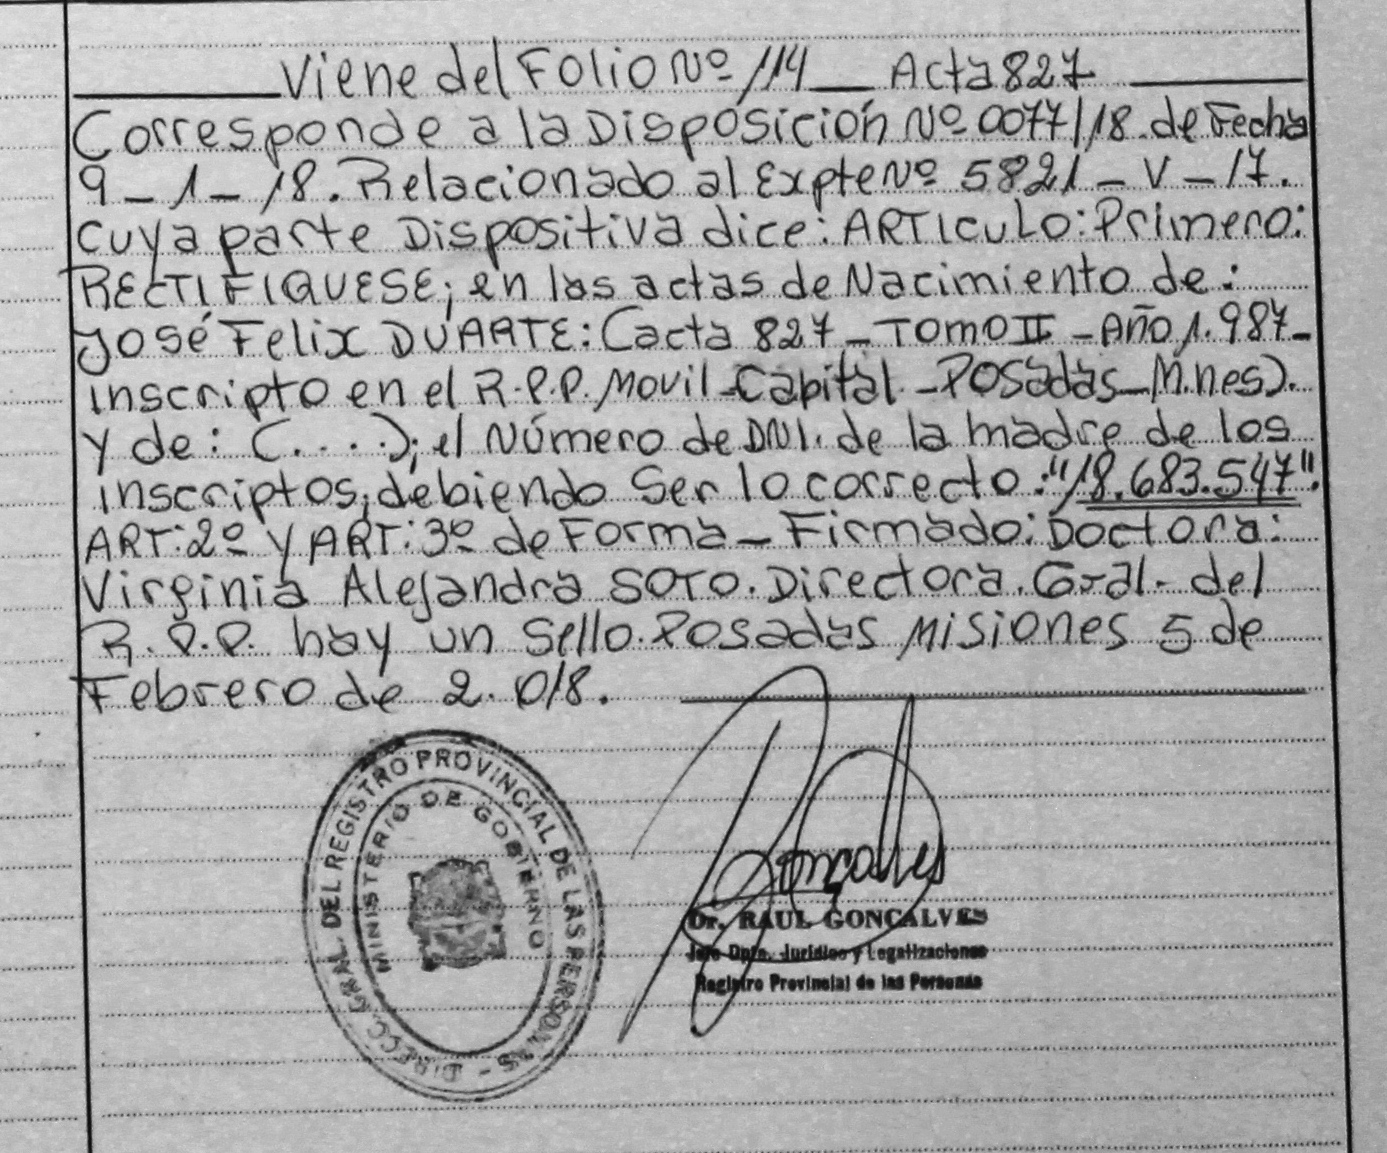 Viene del Folio Nº 114 _ Acta 827
Corresponde a la Disposición Nº 0077/18 de Fecha
9 _ 1 _ 18. Relacionado al Expte Nº 5821 _ V _ 17.
cuya parte Dispositiva dice: ARTICULO: Primero:
RECTIFIQUESE; en las actas de Nacimiento de:
José Felix DUARTE: (acta 827 _ TOMO II _ Año 1.987 _
inscripto en el R.P.P. Movil _ Capital _ Posadas _ M.nes).
y de: (....); el Número de DNI. de la madre de los
inscriptos; debiendo Ser lo correcto: "18.683.547".
ART: 2º Y ART: 3º de Forma _ Firmado: Doctora:
Virginia Alejandra SOTO. Directora. Gral. del
R.P.P. hay un Sello. Posadas Misiones 5 de
Febrero de 2.018.
DIRECC. GRAL. DEL REGISTRO PROVINCIAL DE LAS PERSONAS -
MINISTERIO DE GOBIERNO
Gonçalves
Dr. RAUL GONCALVES
Jefe Dpto. Jurídico y Legalizaciones
Registro Provincial de las Personas